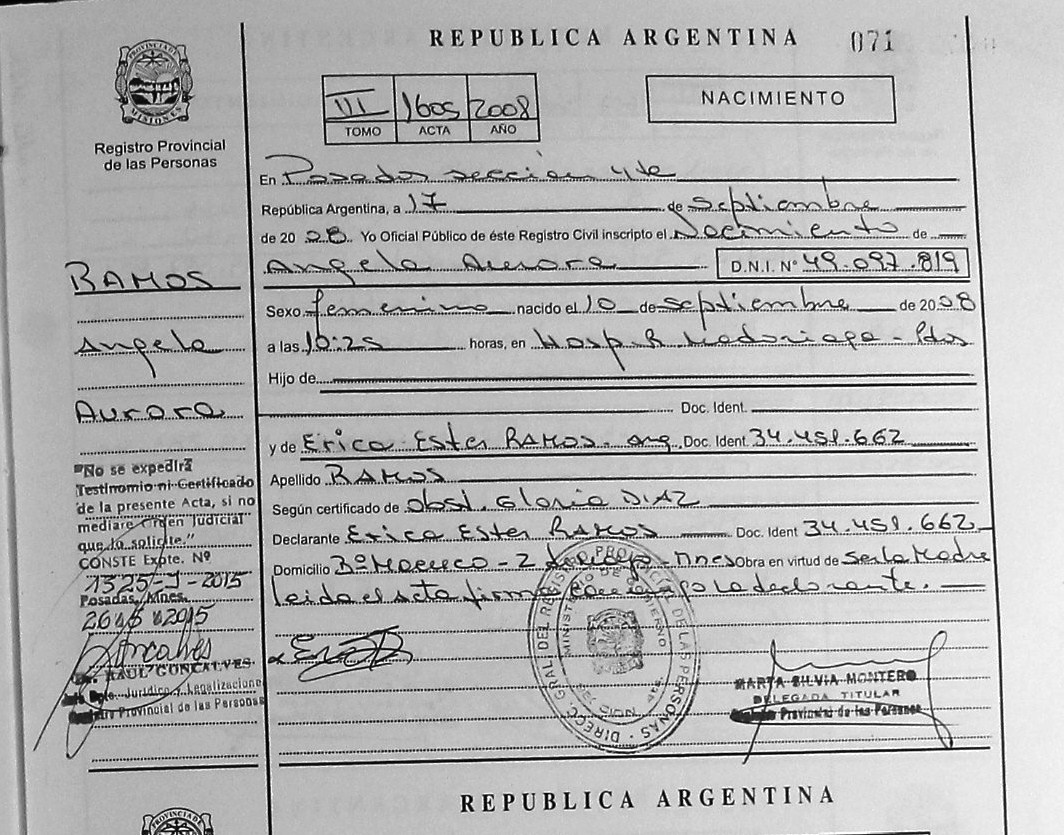 REPUBLICA ARGENTINA 071
PROVINCIA DE
MISIONES
Registro Provincial
de las Personas
III 1605 2008
TOMO ACTA AÑO
NACIMIENTO
En Posadas sección 4ta
República Argentina, a 17 de septiembre
de 20 08. Yo Oficial Público de éste Registro Civil inscripto el Nacimiento de
Angela Aurora D.N.I. Nº 49.097.819
Sexo femenino nacido el 10 de septiembre de 20 08
a las 10:25 horas, en Hosp. R Madariaga - Pdas
Hijo de
Doc. Ident.
y de Erica Ester RAMOS. Arg. Doc. Ident. 34.451.662
Apellido RAMOS
Según certificado de obst. Gloria DIAZ
Declarante Erica Ester RAMOS Doc. Ident 34.451.662
Domicilio Bº - 2 Mnes Obra en virtud de ser la Madre
leida el acta firma la declarante.
RAMOS
Angela
Aurora
"No se expedirá
Testimonio ni Certificado
de la presente Acta, si no
mediare Orden Judicial
que lo solicite."
CONSTE Expte. Nº
1325-J-2015
Posadas, Mnes.
2015
RAUL GONCALVES
Dpto. Jurídico y Legalizaciones
Registro Provincial de las Personas
DIRECC. GRAL DEL REGISTRO PROVINCIAL DE LAS PERSONAS
MINISTERIO DE GOBIERNO
MARTA SILVIA MONTERO
DELEGADA TITULAR
Registro Provincial de las Personas
REPUBLICA ARGENTINA
PROVINCIA DE